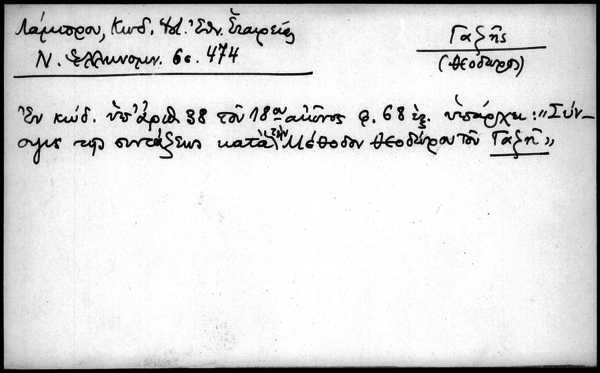 Λάμπρου, Κωδ. Ἱστ. Ἐθν. Ἑταιρείας
Ν. Ἑλληνομν. 6ς. 474
Γαζῆς
(Θεόδωρος)
Ἐν κώδ. ὑπ' ἀριθ. 38 τοῦ 18ου αἰῶνος φ. 68 ἑξ. ὑπάρχει: "Σύν-
οψις τῆς συντάξεως κατὰ τὴν Μέθοδον Θεοδώρου τοῦ Γαζῆ"